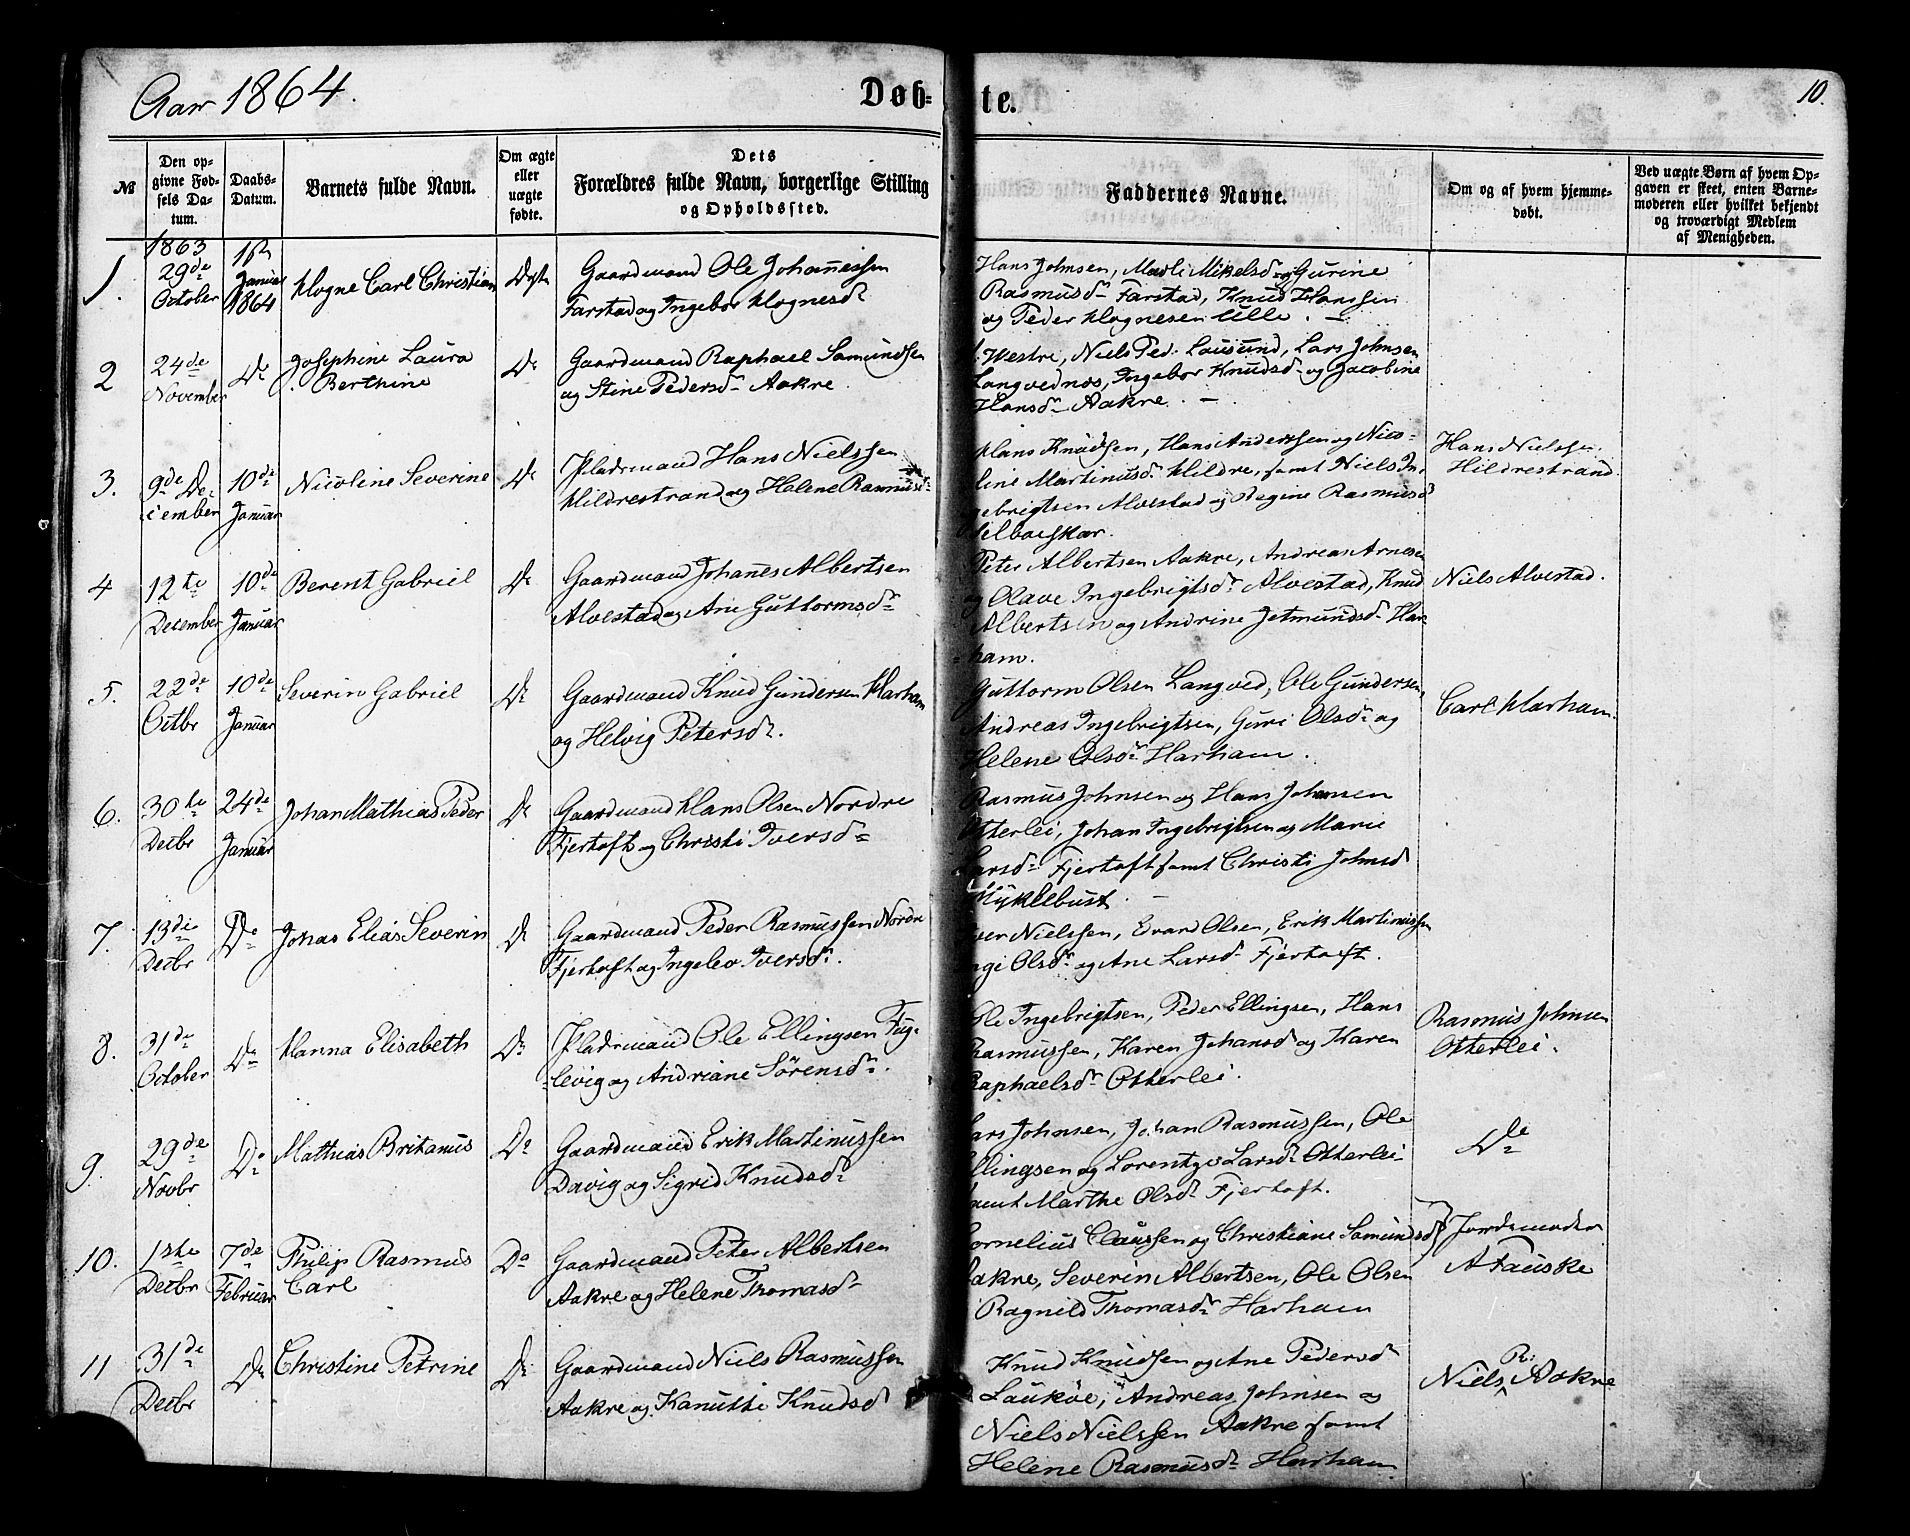 Aar 1864.
Døb-
te.
10.
№
Den op-
givne Fød-
sels Da-
tum.
Daabs-
Datum.
Barnets fulde Navn.
Om ægte
eller
uægte
fødte.
Dets
Forældres fulde Navn, borgerlige Stilling
og Opholdssted.
Faddernes Navne.
Om og af hvem hjemme-
døbt.
Ved uægte Børn af hvem Op-
gaven er skeet, enten Barne-
moderen eller hvilket bekjendt
og troværdigt Medlem
af Menigheden.
1.
1863
29de
October
1ste
Januar
1864
Hogne Carl Christian
Ægte
Gaardmand Ole Johannessen
Farstad og Ingebor Hognesd.
Hans Johnsen, Marli Mikelsd. og Gurine
Rasmusd. Farstad, Knud Hanssen
og Peder Hognesen Ulle. —
2
24de
November
Do
Josephine Laura
Berthine
Do
Gaardmand Raphael Samundsen
og Stine Pedersd. Aakre.
Westre, Niels Ped. Lausund, Lars Johnsen
Langvednæs, Ingebor Knudsd. og Jacobine
Hansd. Aakre. —
3.
9de De-
cember
10de
Januar
Nicoline Severine
Do
Pladsmand Hans Nielssen
Hildrestrand og Helene Rasmusd.
Hans Knudsen, Hans Anderssen og Nico-
line Martinusd. Hildre, samt Niels In-
gebrigtsen Alvestad og Regine Rasmusd.
Selbæskar.
Hans Nielssen
Hildrestrand
4
12te
December
10de
Januar
Berent Gabriel
Do
Gaardmand Johanes Albertsen
Alvestad og Ane Guttormsd.
Peter Albertsen Aakre, Andreas Arnesen
og Olave Ingebrigtsd. Alvestad, Knud
Albertsen og Andrine Jetmundsd. Har-
-ham.
Niels Alvestad.
5.
22de
Octbr
10de
Januar
Severin Gabriel
Do
Gaardmand Knud Gundersen Harham
og Helvig Petersd.
Guttorm Olsen Langved, Ole Gundersen,
Andreas Ingebrigtsen, Guri Olsd. og
Helene Olsd. Harham.
Carl Harham.
6.
30te
Decbr
24de
Januar
Johan Mathias Peder
Do
Gaardmand Hans Olsen Nordre
Fjertoft og Christi Iversd.
Rasmus Johnsen og Hans Johansen
Otterlei, Johan Ingebrigtsen og Marie
Larsd. Fjertoft samt Christi Johnsd.
Myklebust. —
7.
13de
Decbr
Do
Jonas Elias Severin
Do
Gaardmand Peder Rasmussen Nordre
Fjertoft og Ingelev Iversd.
Iver Nielssen, Evard Olsen, Erik Martinussen
Ingi Olsd. og Ane Larsd. Fjertoft.
8.
31de
October
Do
Hanna Elisabeth
Do
Pladsmand Ole Ellingsen Fug-
-levig og Andriane Sörensd.
Ole Ingebrigtsen, Peder Ellingsen, Hans
Rasmussen, Karen Johansd. og Karen
Raphaelsd. Otterlei.
Rasmus Johnsen
Otterlei.
9.
29de
Novbr
Do
Mathias Britanus
Do
Gaardmand Erik Martinussen
Davig og Sigrid Knudsd.
Lars Johnsen, Johan Rasmussen, Ole
Ellingsen og Lorentze Larsd. Otterlei
samt Marthe Olsd. Fjertoft.
Do
10.
1ste
Decbr
7de
Februar
Philip Rasmus
Carl
Do
Gaardmand Peter Albertsen
Aakre og Helene Thomasd.
Cornelius Claussen og Christiane Samundsd.
Aakre, Severin Albertsen, Ole Olsen
Ragnild Thomasd. Harham
Jordemoder
A Fauske
11
31de
Decbr
Do
Christine Petrine
Do
Gaardmand Niels Rasmussen
Aakre og Kanutte Knudsd
Knud Knudsen og Ane Pedersd.
Laukøe, Andreas Johnsen og
Niels Nielssen Aakre samt
Helene Rasmusd. Harham
Niels R: Aakre